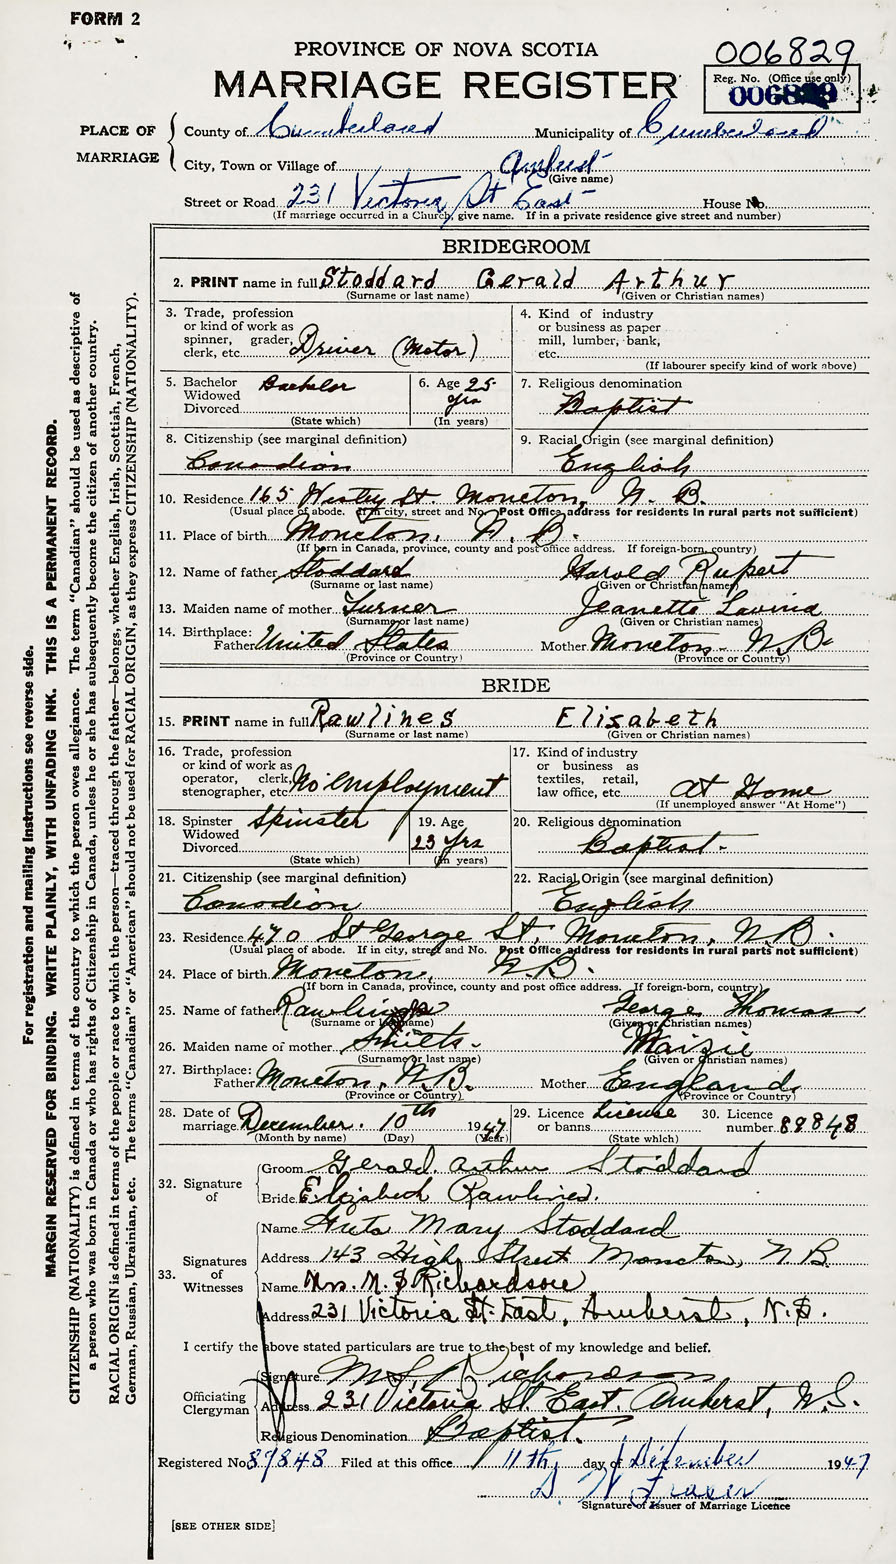 FORM 2
PROVINCE OF NOVA SCOTIA
006829
MARRIAGE REGISTER
Reg. No. (Office use only)
006829
PLACE OF MARRIAGE
County of Cumberland Municipality of Cumberland
City, Town or Village of Amherst
(Give name)
Street or Road 231 Victoria St East House No.
(If marriage occurred in a Church, give name. If in a private residence give street and number)
BRIDEGROOM
2. PRINT name in full Stoddard Gerald Arthur
(Surname or last name) (Given or Christian names)
3. Trade, profession or kind of work as spinner, grader, clerk, etc. Driver (Motor)
4. Kind of industry or business as paper mill, lumber, bank, etc.
(If labourer specify kind of work above)
5. Bachelor Widowed Divorced Bachelor
(State which)
6. Age 25 yrs
(In years)
7. Religious denomination
Baptist
8. Citizenship (see marginal definition)
Canadian
9. Racial Origin (see marginal definition)
English
10. Residence 165 St. Moncton, N.B.
(Usual place of abode. If in city, street and No. Post Office address for residents in rural parts not sufficient)
11. Place of birth Moncton, N.B.
(If born in Canada, province, county and post office address. If foreign-born, country)
12. Name of father Stoddard Harold Rupert
(Surname or last name) (Given or Christian names)
13. Maiden name of mother Turner Jeanette Lavina
(Surname or last name) (Given or Christian names)
14. Birthplace: Father United States Mother Moncton N.B.
(Province or Country) (Province or Country)
BRIDE
15. PRINT name in full Rawlines Elisabeth
(Surname or last name) (Given or Christian names)
16. Trade, profession or kind of work as operator, clerk, stenographer, etc. No employment
17. Kind of industry or business as textiles, retail, law office, etc. at Home
(If unemployed answer "At Home")
18. Spinster Widowed Divorced Spinster
(State which)
19. Age 23 yrs
(In years)
20. Religious denomination
Baptist.
21. Citizenship (see marginal definition)
Canadian
22. Racial Origin (see marginal definition)
English
23. Residence 470 St George St, Moncton, N.B.
(Usual place of abode. If in city, street and No. Post Office address for residents in rural parts not sufficient)
24. Place of birth Moncton, N.B.
(If born in Canada, province, county and post office address. If foreign-born, country)
25. Name of father George Thomas
(Surname or last name) (Given or Christian names)
26. Maiden name of mother Maizie
(Surname or last name) (Given or Christian names)
27. Birthplace: Father Moncton, N.B. Mother England
(Province or Country) (Province or Country)
28. Date of marriage December 10th 1947
(Month by name) (Day) (Year)
29. Licence or banns License
(State which)
30. Licence number 88848
32. Signature of
Groom Gerald Arthur Stoddard
Bride Elizabeth Rawlines.
33. Signatures of Witnesses
Name Mary Stoddard
Address 143 High Street Moncton, N.B.
Name Mrs. M. S. Richardson
Address 231 Victoria St. East, Amherst, N.S.
I certify the above stated particulars are true to the best of my knowledge and belief.
Officiating Clergyman
Signature M S Richardson
Address 231 Victoria St. East, Amherst, N.S.
Religious Denomination Baptist.
Registered No. 87848 Filed at this office 11th day of December 1947
Fraser
Signature of Issuer of Marriage Licence
[SEE OTHER SIDE]
For registration and mailing instructions see reverse side.
MARGIN RESERVED FOR BINDING. WRITE PLAINLY, WITH UNFADING INK. THIS IS A PERMANENT RECORD.
CITIZENSHIP (NATIONALITY) is defined in terms of the country to which the person owes allegiance. The term "Canadian" should be used as descriptive of
a person who was born in Canada or who has rights of Citizenship in Canada, unless he or she has subsequently become the citizen of another country.
RACIAL ORIGIN is defined in terms of the people or race to which the person—traced through the father—belongs, whether English, Irish, Scottish, French,
German, Russian, Ukrainian, etc. The terms "Canadian" or "American" should not be used for RACIAL ORIGIN, as they express CITIZENSHIP (NATIONALITY).